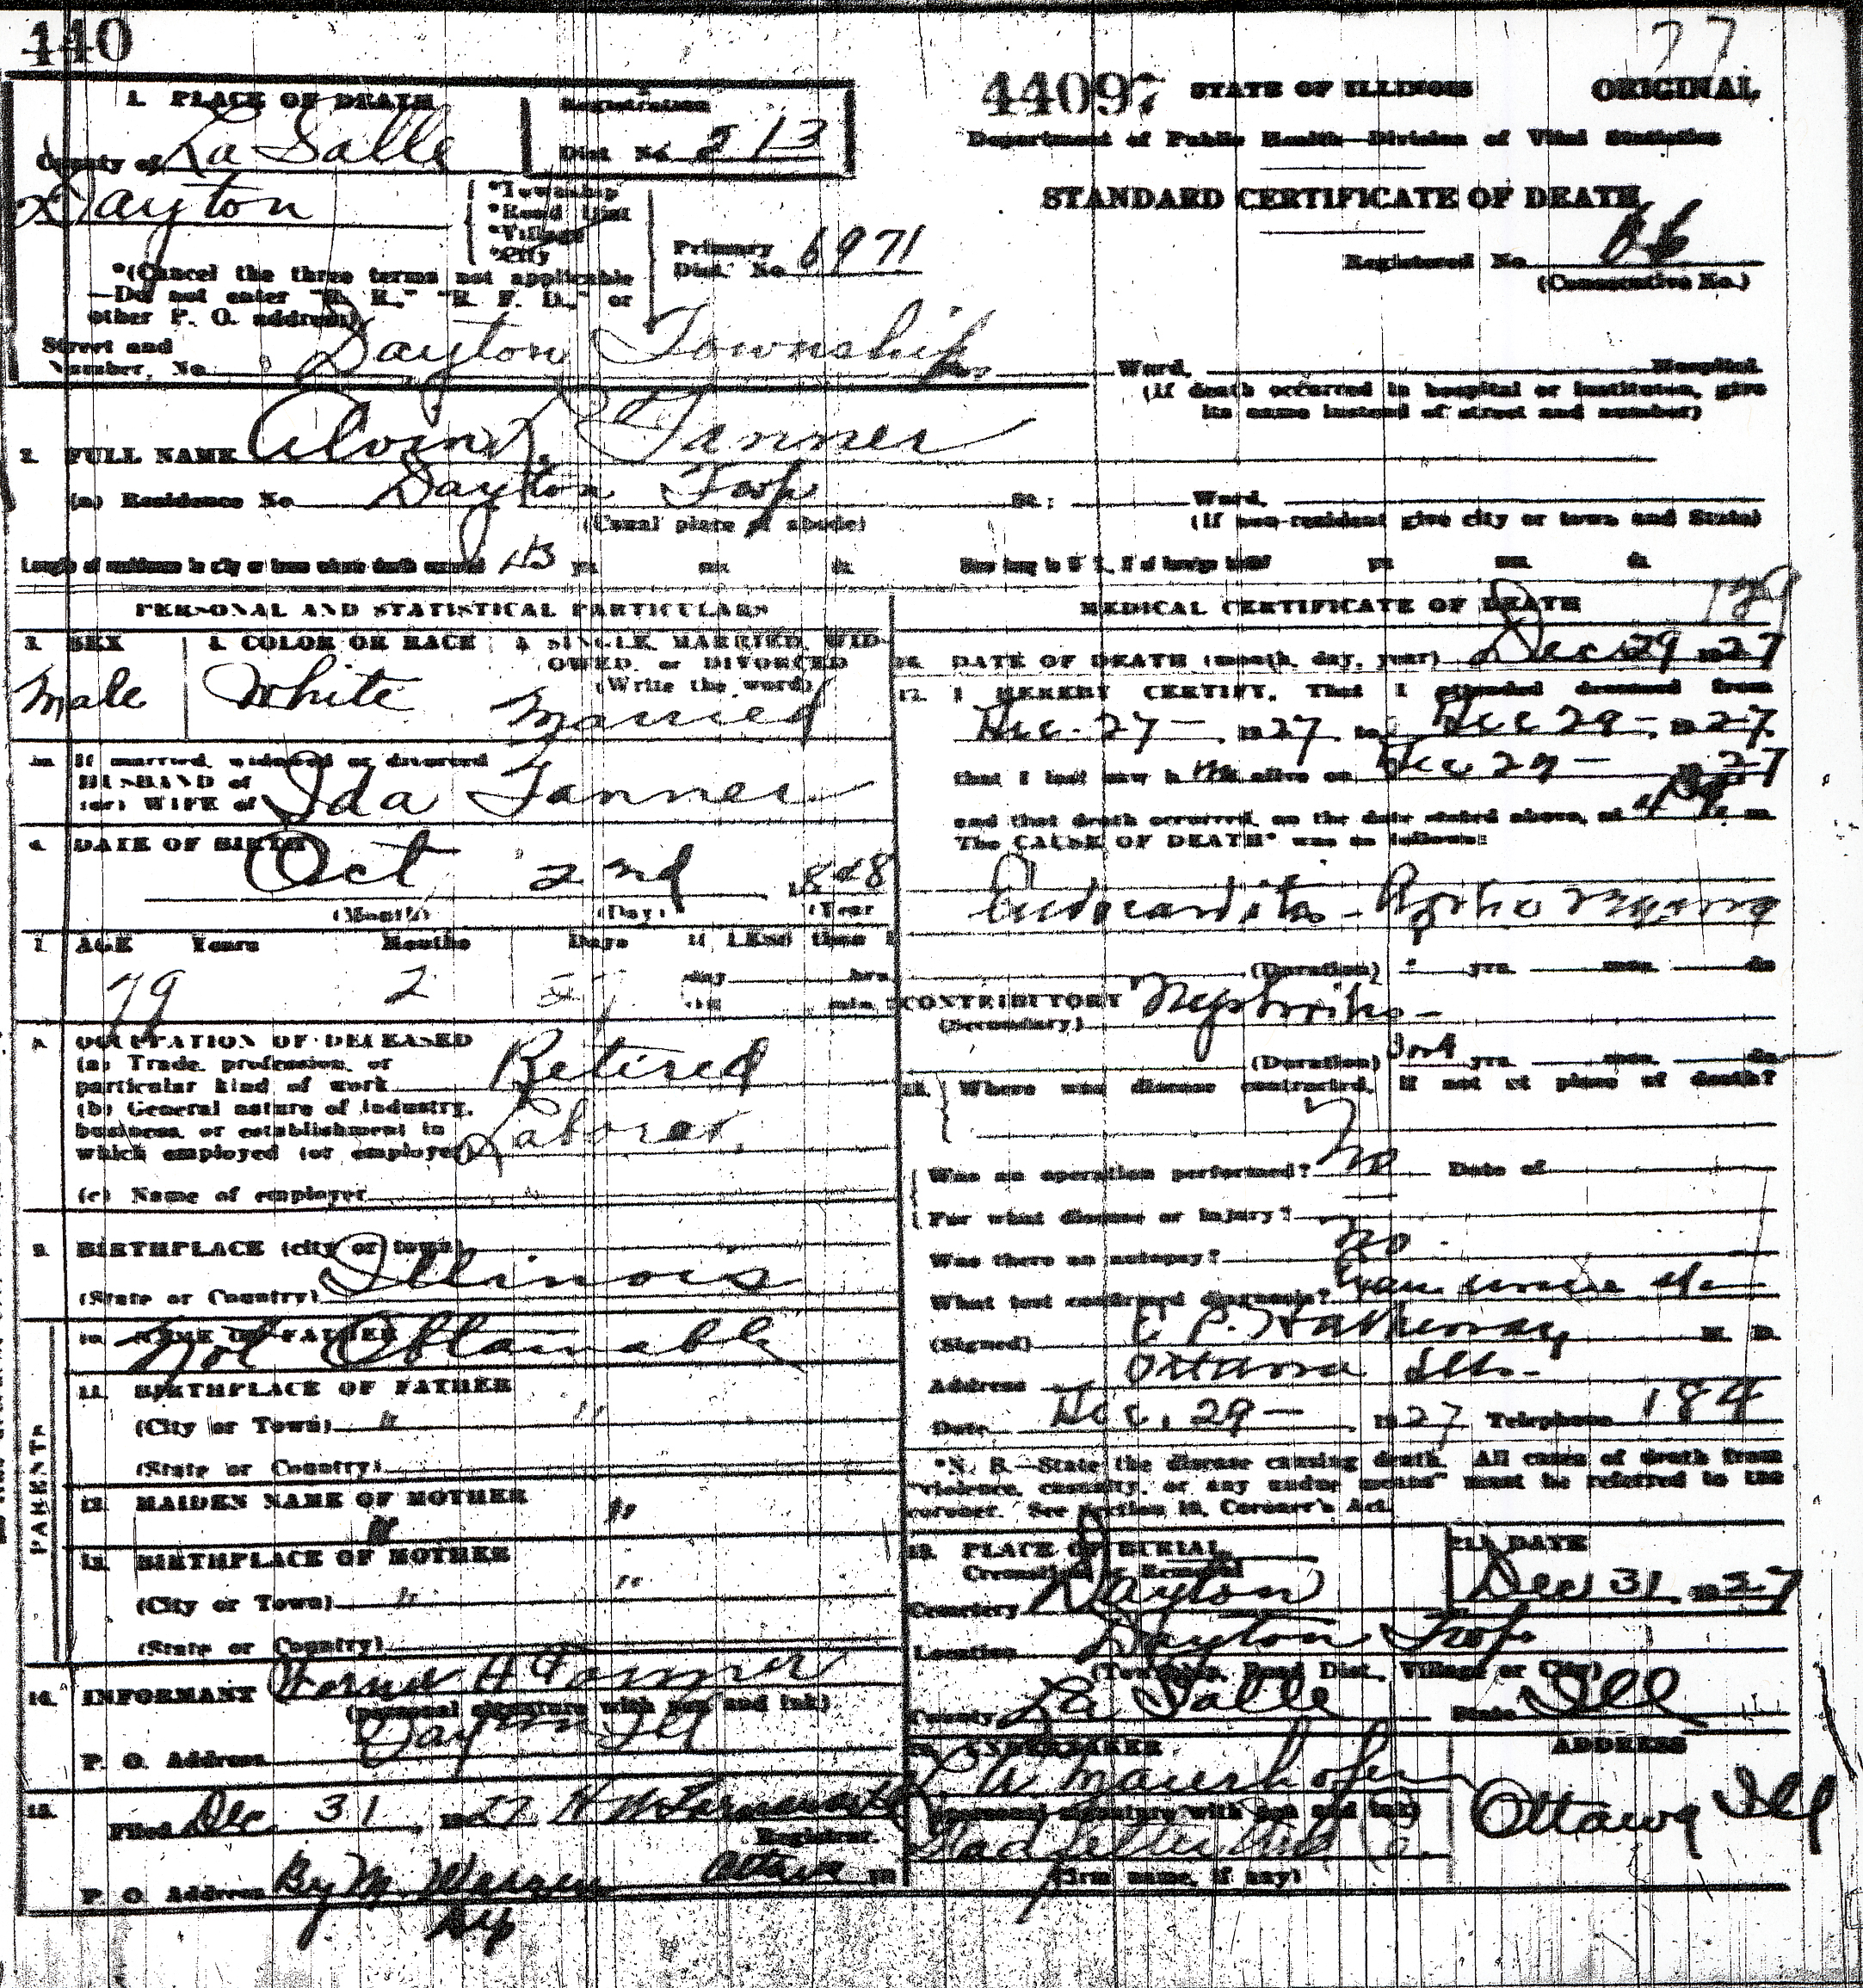 440
77
44097 STATE OF ILLINOIS ORIGINAL
Department of Public Health—Division of Vital Statistics
STANDARD CERTIFICATE OF DEATH
Registered No. 66
(Consecutive No.)
1. PLACE OF DEATH
Registration
County of La Salle
Dist. No. 213
Dayton
*Township
*Road Dist
*Village
*City
Primary
Dist. No. 6971
*(Cancel the three terms not applicable
—Do not enter "R. R.," "R. F. D.," or
other P. O. address)
Street and
Number, No. Dayton Township
Ward, Hospital
(If death occurred in hospital or institution, give
its name instead of street and number)
2. FULL NAME Alvin Tanner
(a) Residence No. Dayton Twp St.; Ward,
(Usual place of abode) (If non-resident give city or town and State)
Length of residence in city or town where death occurred 43 yrs. mos. ds. How long in U. S., if of foreign birth? yrs. mos. ds.
PERSONAL AND STATISTICAL PARTICULARS
3. SEX
Male
4. COLOR OR RACE
White
5. SINGLE, MARRIED, WID-
OWED, or DIVORCED
(Write the word)
Married
5a. If married, widowed or divorced
HUSBAND of
(or) WIFE of Ida Tanner
6. DATE OF BIRTH
Oct 2nd 1848
(Month) (Day) (Year
7. AGE Years Months Days If LESS than 1
79 2 27 day hrs.
or min.
8. OCCUPATION OF DECEASED
(a) Trade, profession, or
particular kind of work Retired
(b) General nature of industry,
business, or establishment in
which employed (or employer) Laborer
(c) Name of employer
9. BIRTHPLACE (city or town)
(State or Country) Illinois
PARENTS
10. NAME OF FATHER
Not Obtainable
11. BIRTHPLACE OF FATHER
(City or Town) " "
(State or Country)
12. MAIDEN NAME OF MOTHER
" "
13. BIRTHPLACE OF MOTHER
(City or Town) " "
(State or Country)
14. INFORMANT H Tanner
(personal signature with pen and ink)
P. O. Address Dayton Ill
15.
Filed Dec 31, 1927
Registrar.
P. O. Address By M. Warren Ottawa Ill
Dep
MEDICAL CERTIFICATE OF DEATH
16. DATE OF DEATH (month, day, year) Dec 29 1927
17. I HEREBY CERTIFY, That I attended deceased from
Dec. 27 — 1927, to Dec 29 —, 1927
that I last saw him alive on Dec 29 — 1927
and that death occurred, on the date stated above, at m.
The CAUSE OF DEATH* was as follows:
Endocarditis
(Duration) yrs. mos. ds.
CONTRIBUTORY Nephritis —
(Secondary)
(Duration) yrs. mos. ds.
18. Where was disease contracted, if not at place of death?
Was an operation performed? no Date of
For what disease or injury?
Was there an autopsy? no.
What test confirmed diagnosis?
(Signed) E P. Hathaway M. D.
Address Ottawa Ills.
Date Dec. 29 — 1927 Telephone 184
*N. B.—State the disease causing death. All cases of death from
"violence, casualty, or any undue means" must be referred to the
coroner. See Section 10, Coroner's Act.
19. PLACE OF BURIAL,
Cremation or Removal
Cemetery Dayton
Location Dayton Twp
(Township, Road Dist., Village or City)
County La Salle State Ill
DATE
Dec 31, 1927
20. UNDERTAKER ADDRESS
(personal signature with pen and ink)
Ottawa Ill
(firm name, if any)